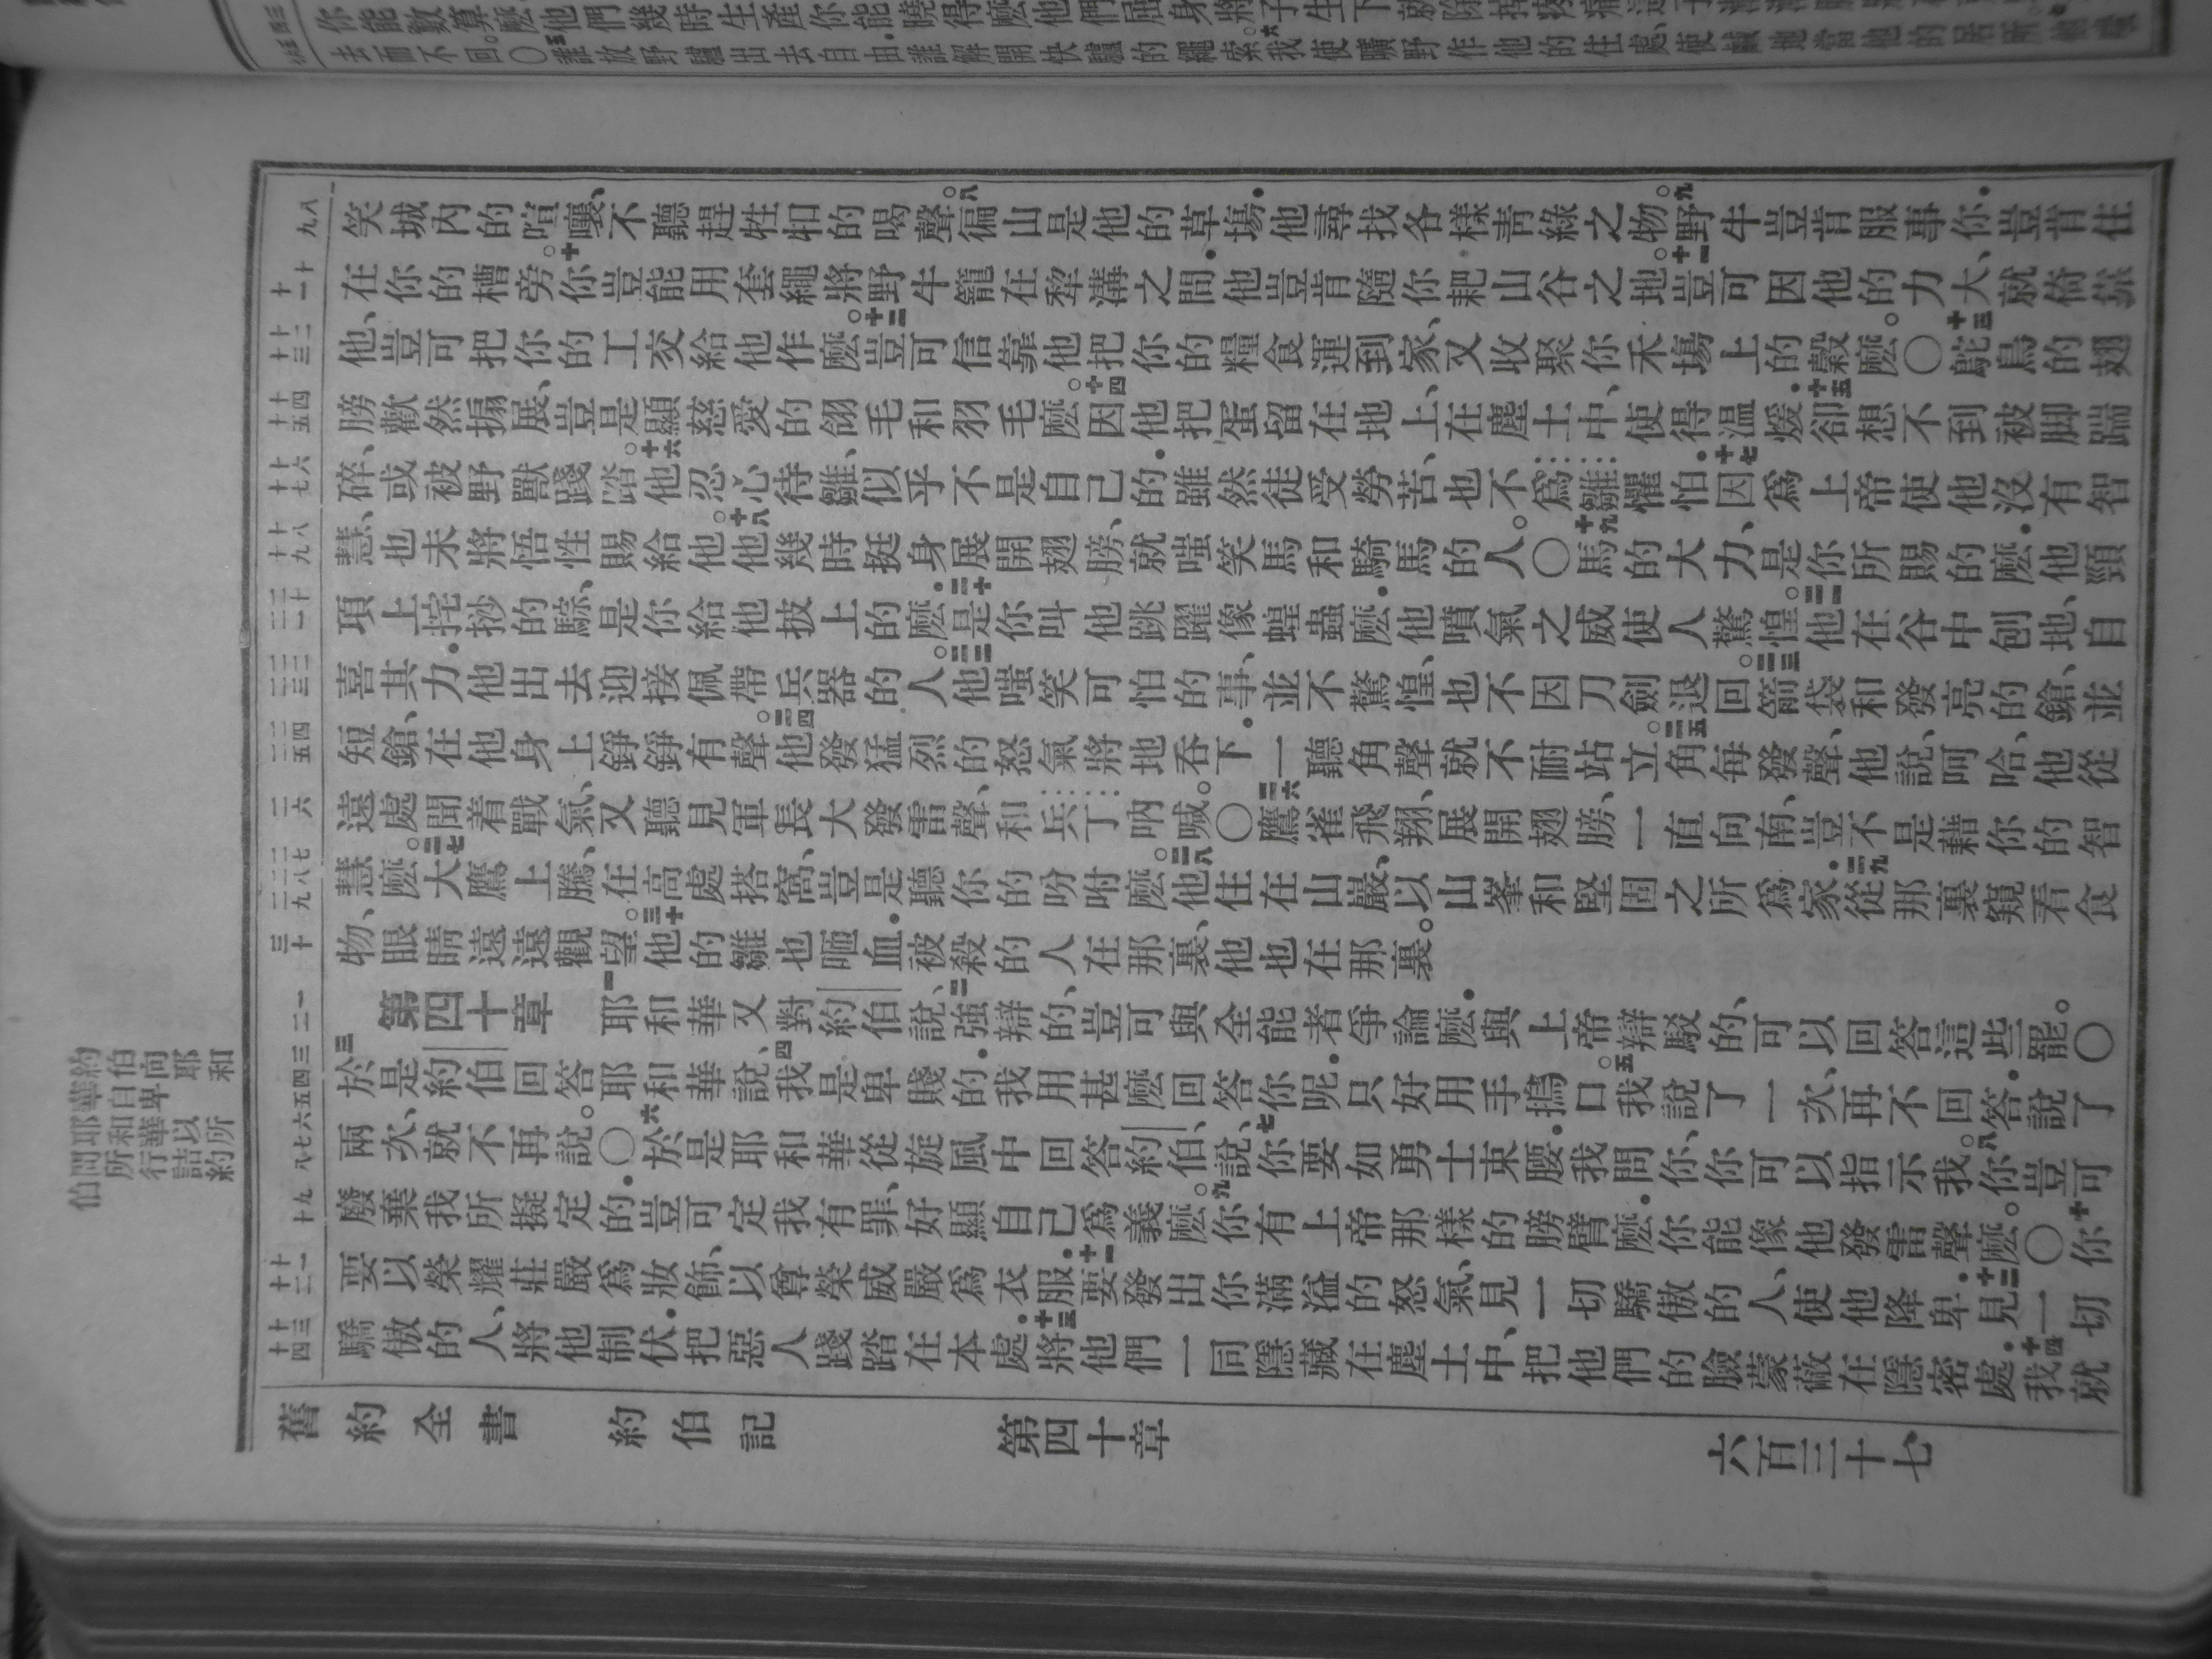 你能數算麽他們幾時生產你能曉得麽他們屈身將子生下就除掉疼痛
去而不回。〇五誰放野驢出去自由誰解開快驢的繩索。六我使曠野作他的住處使鹹地當他的居所
笑城內的喧嚷、不聽趕牲口的喝聲。八徧山是他的草場他尋找各樣青綠之物。九野牛豈肯服事你.豈肯住
在你的槽旁。十你豈能用套繩將野牛籠在犂溝之間.他豈肯隨你耙山谷之地。十一豈可因他的力大、就倚靠
他、豈可把你的工交給他作麽。十二豈可信靠他把你的糧食運到家、又收聚你禾場上的穀麽。〇十三鴕鳥的翅
膀歡然搧展、豈是顯慈愛的翎毛和羽毛麽。十四因他把蛋留在地上、在塵土中、使得溫煖.十五卻想不到被脚踹
碎、或被野獸踐踏。十六他忍心待雛、似乎不是自己的.雖然徒受勞苦、也不爲雛懼怕.十七因爲上帝使他沒有智
慧、也未將悟性賜給他。十八他幾時挺身展開翅膀、就嗤笑馬和騎馬的人。〇十九馬的大力、是你所賜的麽.他頸
項上挓抄的騌、是你給他披上的麽.二十是你叫他跳躍像蝗蟲麽.他噴氣之威使人驚惶。二一他在谷中刨地、自
喜其力.他出去迎接佩帶兵器的人。二二他嗤笑可怕的事、並不驚惶、也不因刀劍退回。二三箭袋和發亮的鎗、並
短鎗、在他身上錚錚有聲。二四他發猛烈的怒氣將地吞下.一聽角聲就不耐站立。二五角每發聲、他說、阿哈、他從
遠處聞着戰氣、又聽見軍長大發雷聲、和兵丁吶喊。〇二六鷹雀飛翔、展開翅膀、一直向南、豈不是藉你的智
慧麽。二七大鷹上騰、在高處搭窩、豈是聽你的吩咐麽。二八他住在山巖、以山峯和堅固之所爲家.二九從那裏窺看食
物、眼睛遠遠觀望。三十他的雛也咂血.被殺的人在那裏、他也在那裏。
第四十章 一耶和華又對約伯說、二強辯的、豈可與全能者爭論麽.與上帝辯駁的、可以回答這些罷。〇
三於是約伯回答耶和華說、四我是卑賤的.我用甚麽回答你呢.只好用手摀口。五我說了一次、再不回答.說了
兩次、就不再說。〇六於是耶和華從旋風中回答約伯、說、七你要如勇士束腰.我問你、你可以指示我。八你豈可
廢棄我所擬定的.豈可定我有罪、好顯自己爲義麽。九你有上帝那樣的膀臂麽.你能像他發雷聲麽。〇十你
要以榮耀莊嚴爲妝飾、以尊榮威嚴爲衣服.十一要發出你滿溢的怒氣、見一切驕傲的人、使他降卑.十二見一切
驕傲的人、將他制伏.把惡人踐踏在本處.十三將他們一同隱藏在塵土中、把他們的臉蒙蔽在隱密處.十四我就
舊約全書 約伯記 第四十章 六百三十七
約伯自卑以
耶和華向
耶和華詰
約伯問所行所